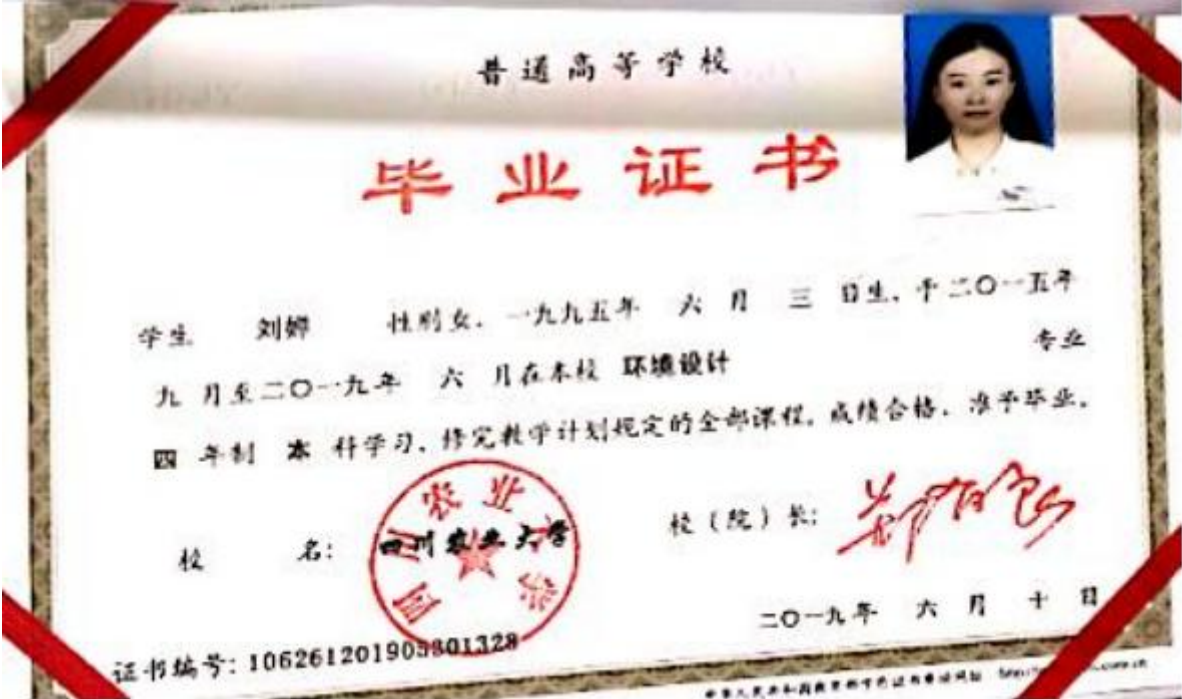 普通高等学校
毕业证书
学生 刘婵 性别女，一九九五年 六 月 三 日生，于二〇一五年
九 月至二〇一九年 六 月在本校 环境设计 专业
四 年制 本 科学习，修完教学计划规定的全部课程，成绩合格，准予毕业。
四川农业大学
校 名： 四川农业大学 校（院）长：
二〇一九年 六 月 十 日
证书编号：106261201905301328